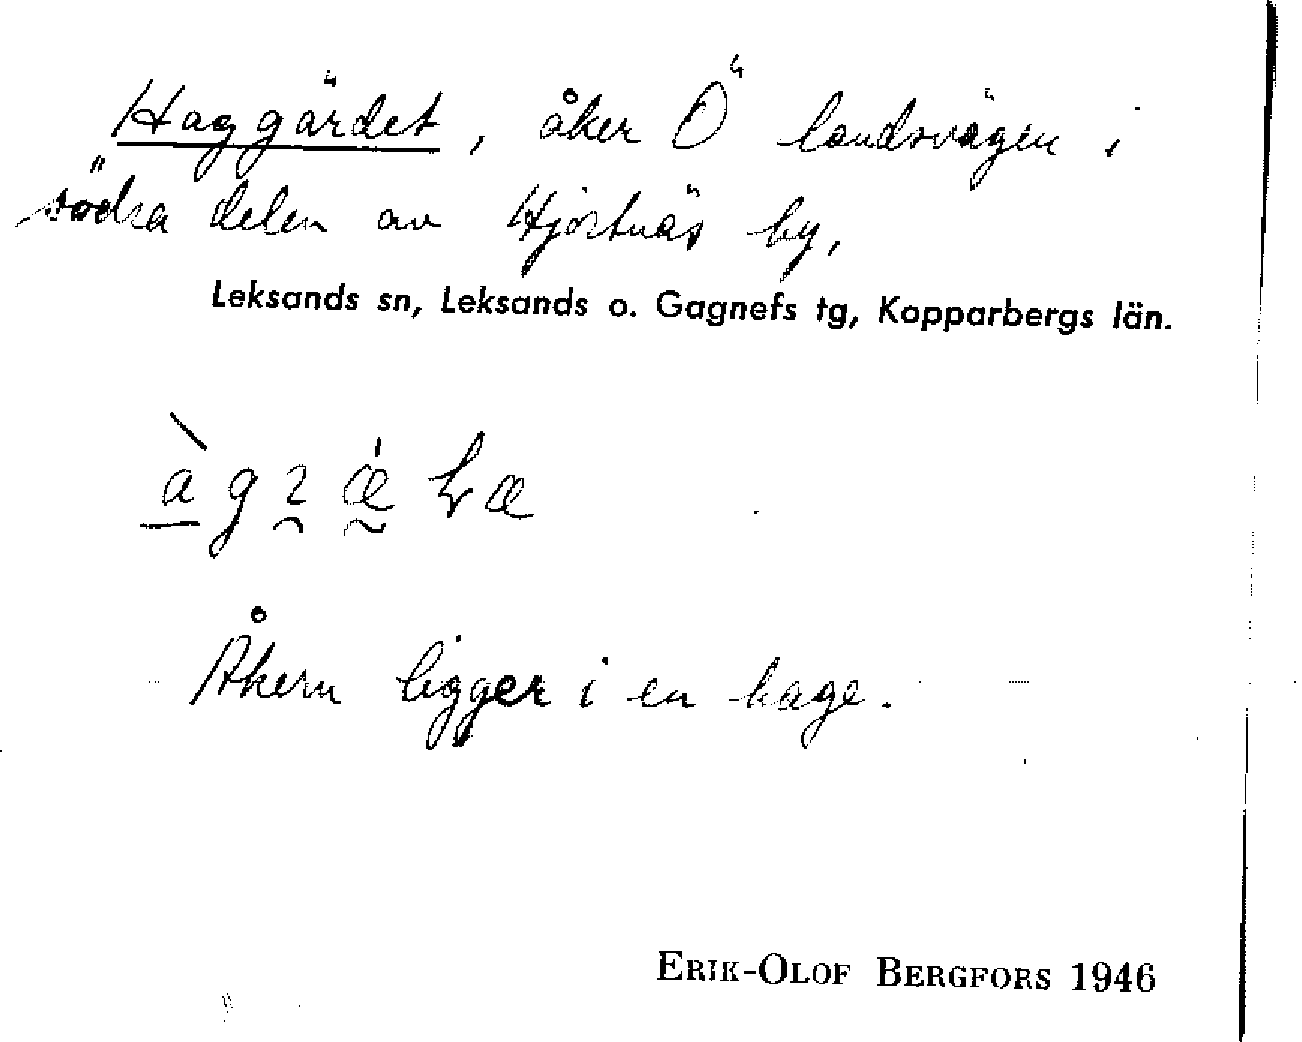 Haggärdet, åker Ö landsvägen i
södra delen av Hjortnäs by,
Leksands sn, Leksands o. Gagnefs tg, Kopparbergs län.
Åkern ligger i en hage.
ERIK-OLOF BERGFORS 1946